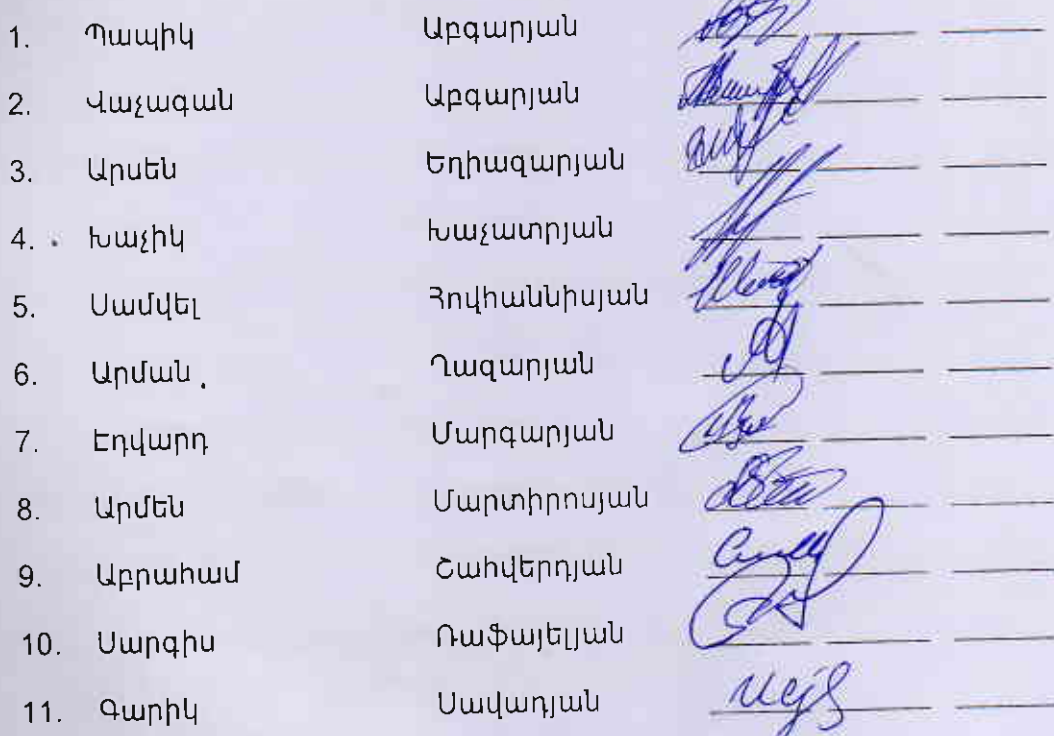 1. Պապիկ Աբգարյան
2. Վաչագան Աբգարյան
3. Արսեն Եղիազարյան
4. Խաչիկ Խաչատրյան
5. Սամվել Հովհաննիսյան
6. Արման Ղազարյան
7. Էդվարդ Մարգարյան
8. Արմեն Մարտիրոսյան
9. Աբրահամ Շահվերդյան
10. Սարգիս Ռաֆայելյան
11. Գարիկ Սավադյան